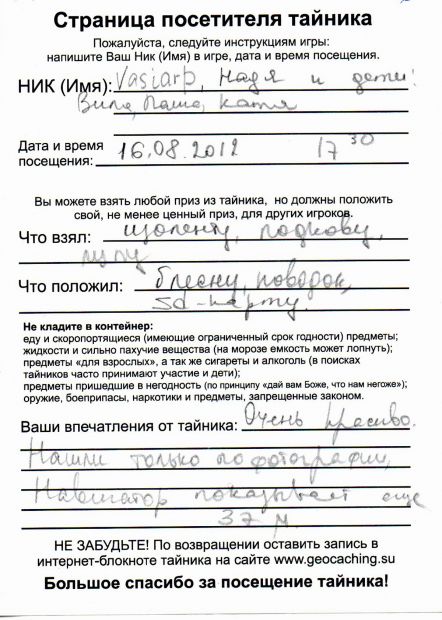 Страница посетителя тайника
Пожалуйста, следуйте инструкциям игры:
напишите Ваш Ник (Имя) в игре, дата и время посещения.
НИК (Имя): Vasiarp, Надя и дети:
Вила, Паша, Катя
Дата и время
посещения: 16.08.2012 17 30
Вы можете взять любой приз из тайника, но должны положить
свой, не менее ценный приз, для других игроков.
Что взял: изоленту, подкову,
лупу
Что положил: блесну, поводок,
sd-карту.
Не кладите в контейнер:
еду и скоропортящиеся (имеющие ограниченный срок годности) предметы;
жидкости и сильно пахучие вещества (на морозе емкость может лопнуть);
предметы «для взрослых», а так же сигареты и алкоголь (в поисках
тайников часто принимают участие и дети);
предметы пришедшие в негодность (по принципу «дай вам Боже, что нам негоже»);
оружие, боеприпасы, наркотики и предметы, запрещенные законом.
Ваши впечатления от тайника: Очень красиво.
Нашли только по фотографии,
Навигатор показывает еще
37 м.
НЕ ЗАБУДЬТЕ! По возвращении оставить запись в
интернет-блокноте тайника на сайте www.geocaching.su
Большое спасибо за посещение тайника!